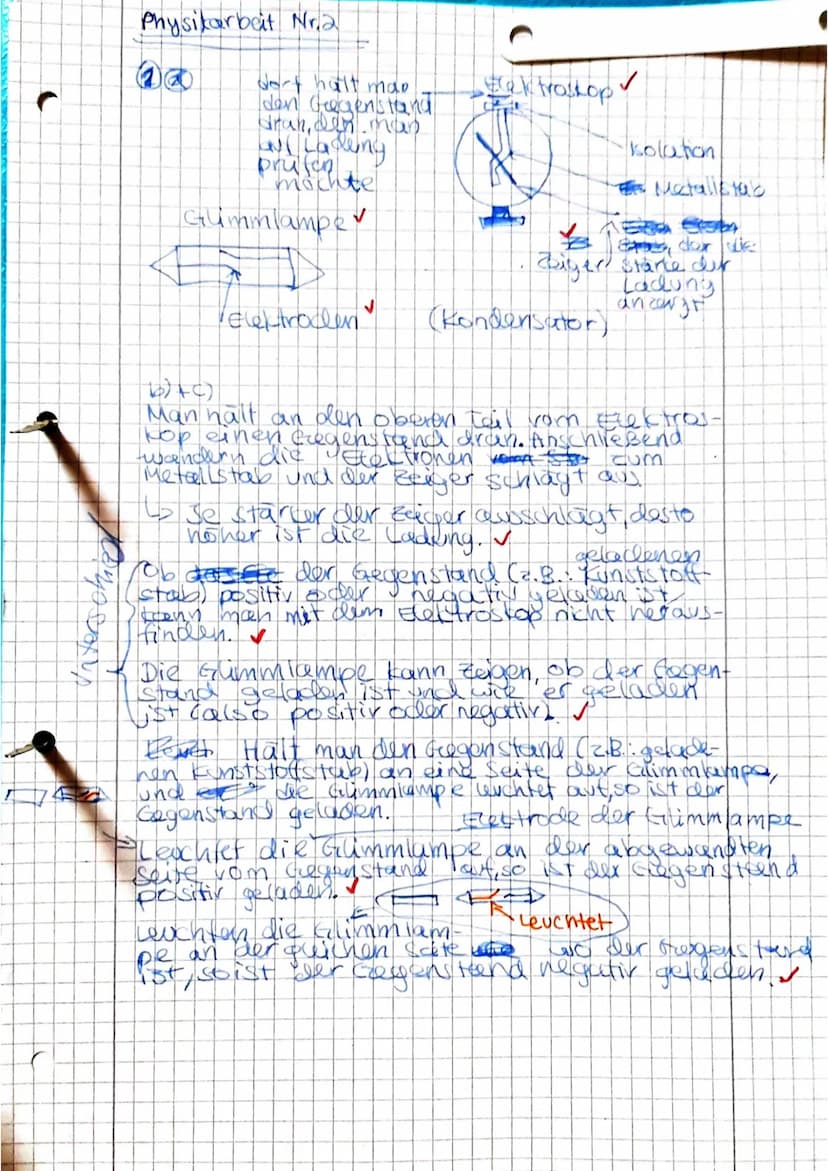 Physikarbeit Nr.2
1 a
dort hält man
den Gegenstand
dran, den man
auf Ladung
prüfen
möchte
Elektroskop
Isolation
Metallstab
Zeiger
der die
Stärke der
Ladung
anzeigt
Glimmlampe
Elektroden
(Kondensator)
b)+c)
Man hält an den oberen Teil vom Elektros-
kop einen Gegenstand dran. Anschließend
wandern die Elektronen zum
Metallstab und der Zeiger schlägt aus
↳ Je stärker der Zeiger ausschlägt, desto
höher ist die Ladung.
Unterschied
geladenen
Ob der Gegenstand (z.B.: Kunststoff-
stab) positiv oder negativ geladen ist,
kann man mit dem Elektroskop nicht heraus-
finden.
Die Glimmlampe kann zeigen, ob der Gegen-
stand geladen ist und wie er geladen
ist (also positiv oder negativ).
Hält man den Gegenstand (z.B.: gelade-
nen Kunststoffstab) an eine Seite der Glimmlampe,
und die Glimmlampe leuchtet auf, so ist der
Gegenstand geladen.
Elektrode der Glimmlampe
Leuchtet die Glimmlampe an der abgewandten
Seite vom Gegenstand auf, so ist der Gegenstand
positiv geladen.
Leuchtet
Leuchten die Glimmlam-
pe an der gleichen Seite wo der Gegenstand
ist, so ist der Gegenstand negativ geladen.